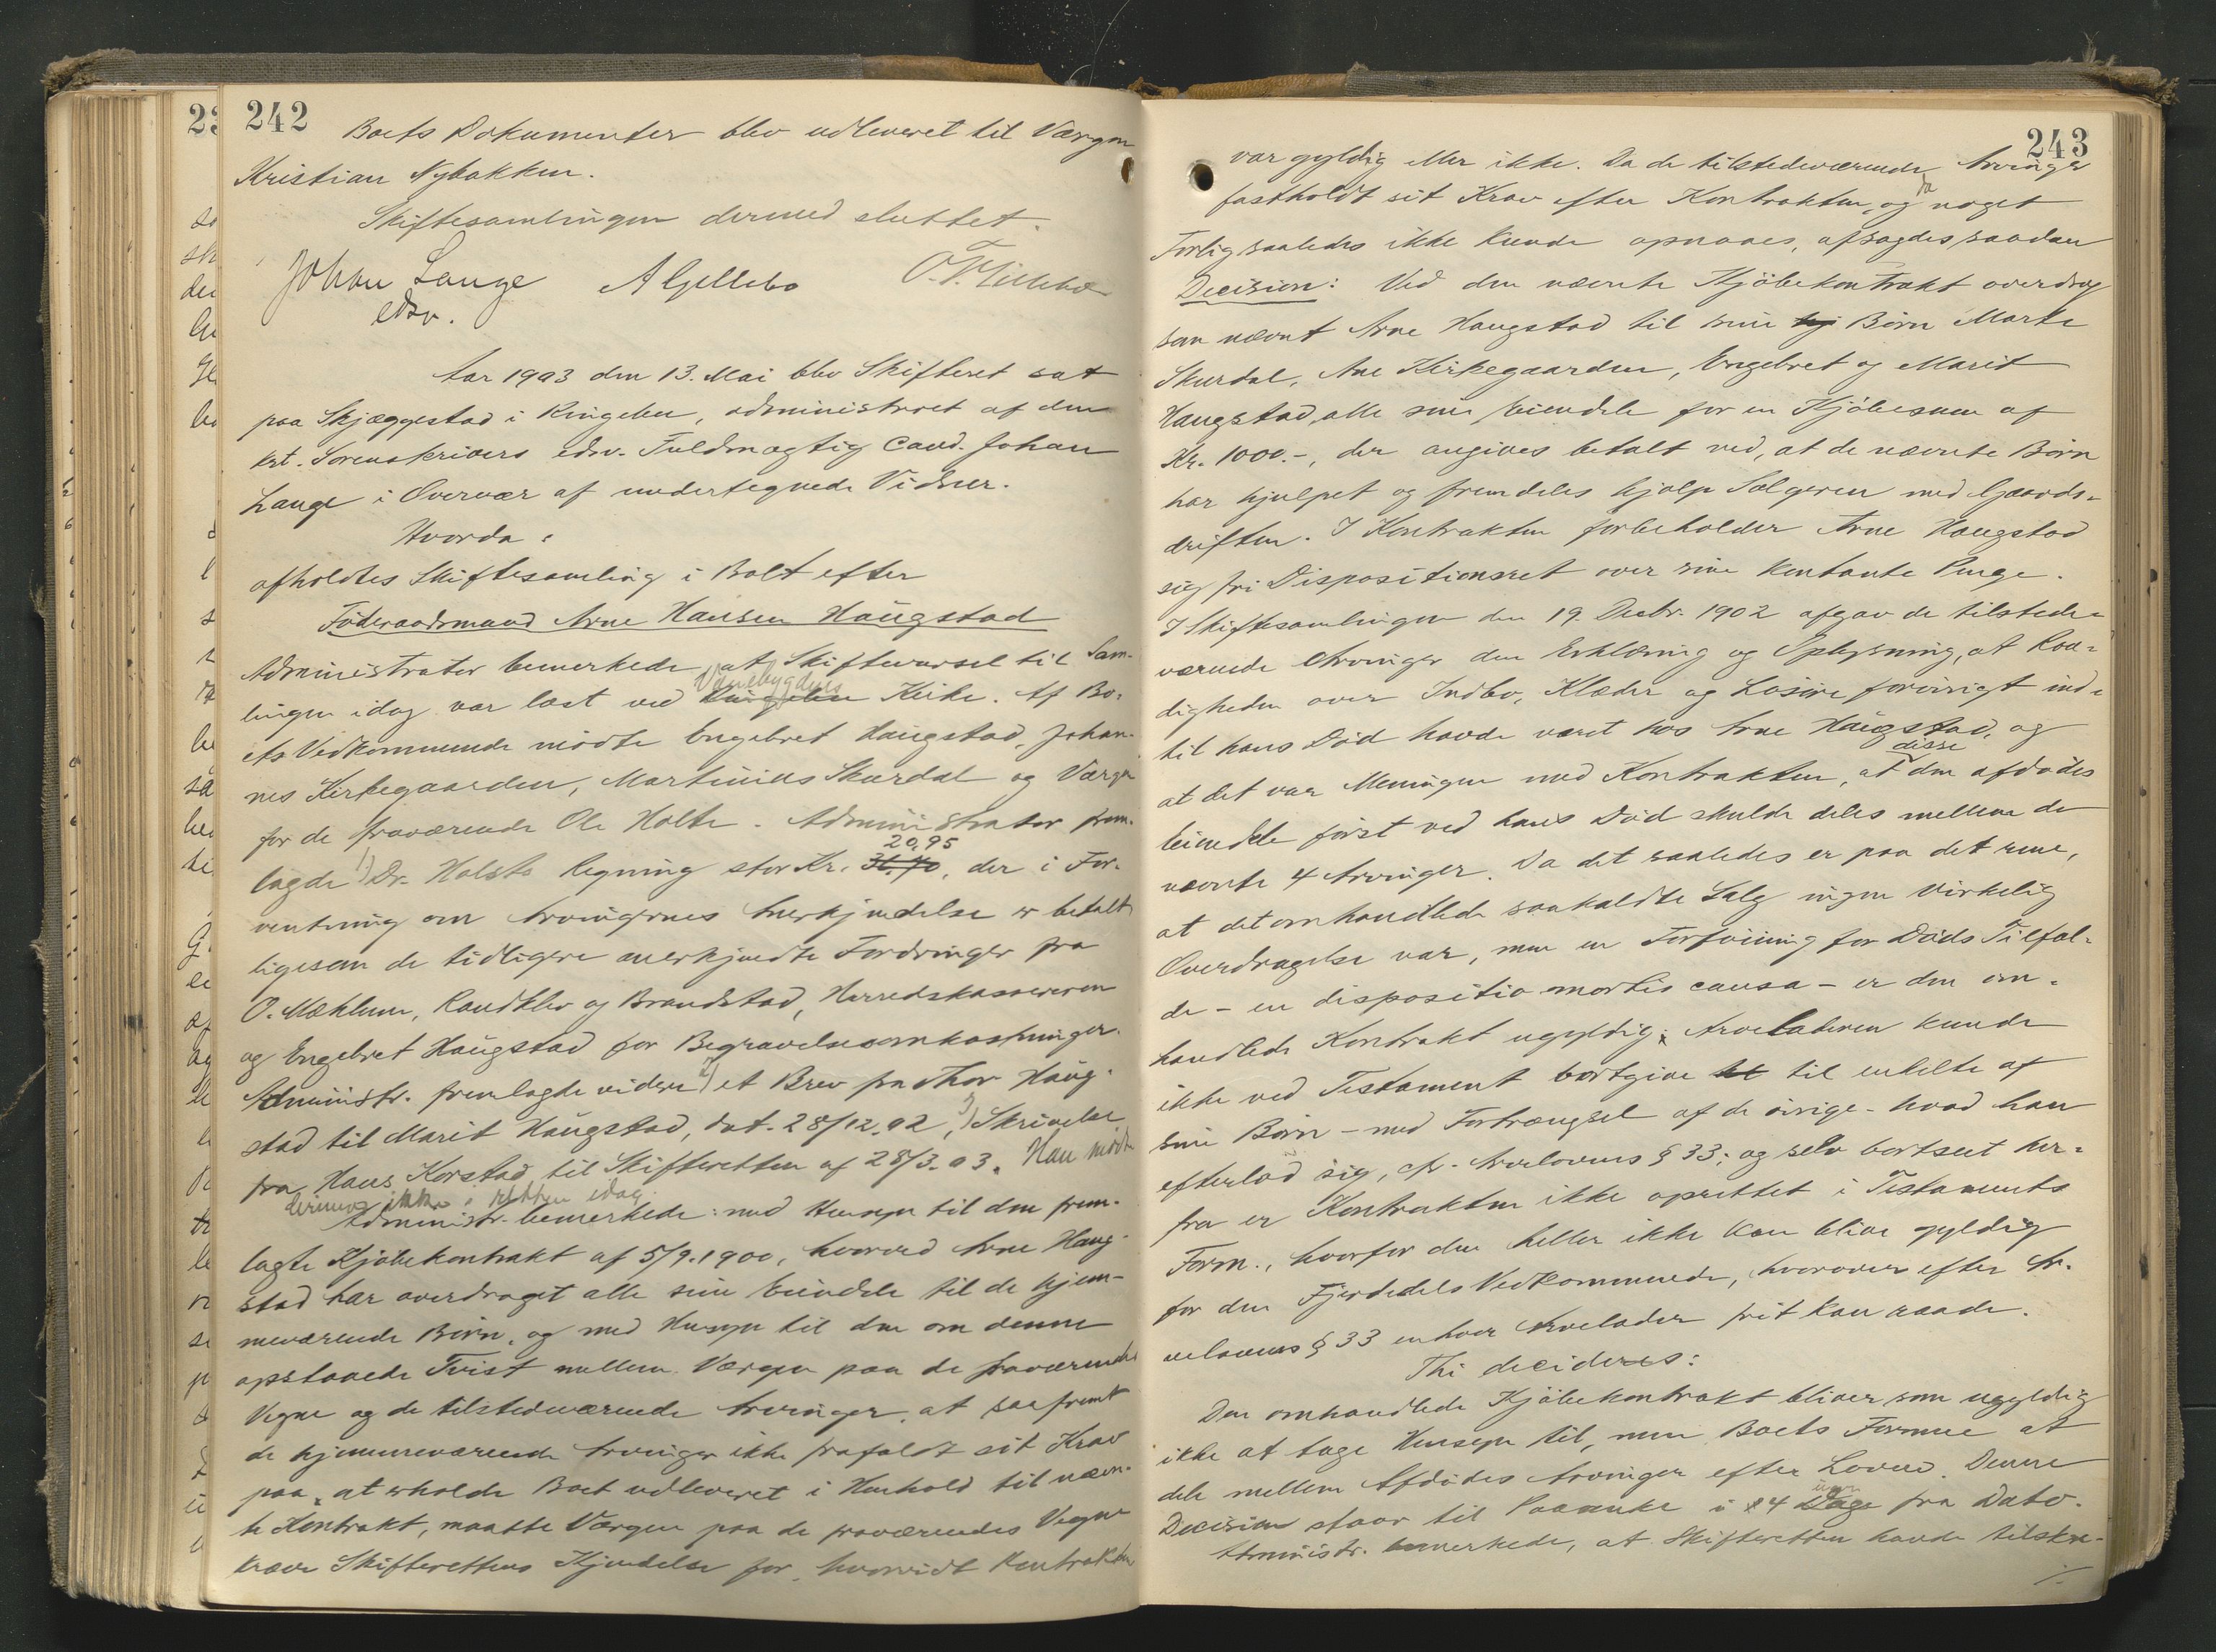 242
Boets Dokumenter blev udleveret til Værgen
Kristian Nybakken.
Skiftesamlingen dermed sluttet.
Johan Lange A Gjellebo O. T. Gillebo
edsv.
Aar 1903 den 13. Mai blev Skifteret sat
paa Skjæggestad i Ringebu, administreret af den
kst. Sorenskrivers edsv. Fuldmægtig Cand. Johan
Lange i Overvær af undertegnede Vidner.
Hvorda:
afholdtes Skiftesamling i Boet efter
Föderaadsmand Arne Hansen Haugstad
Administrator bemerkede, at Skiftevarsel til Sam-
Venebygdens
lingen idag var læst ved Ringebu Kirke. Af Bo-
ets Vedkommende mödte Engebret Haugstad, Johan-
nes Kirkegaarden, Martinius Skurdal og Værgen
for de fraværende Ole Holte. Administrator frem-
20,95
lagde 1) Dr. Holsts Regning stor Kr. 31.70, der i For-
ventning om Arvingernes Anerkjendelse er betalt
ligesom de tidligere anerkjendte Fordringer fra
O. Mæhlum, Randklev og Brandstad, Herredskassereren
og Engebret Haugstad for Begravelsesomkostninger.
Administr. fremlagde videre 2) et Brev fra Thor Haug-
stad til Marit Haugstad, dat. 28/12.02, 3) Skrivelse
fra Hans Korstad til Skifteretten af 28/3.03. Han mödte
derimod ikke i retten idag.
Administr. bemerkede: med Hensyn til den frem-
lagte Kjöbekontrakt af 5/9.1900, hvorved Arne Haug-
stad har overdraget alle sine Eiendele til de hjem-
meværende Börn, og med Hensyn til den om denne
opstaaede Tvist mellem Værgen paa de fraværendes
Vegne og de tilstedeværende Arvinger, at saafremt
de hjemmeværende Arvinger ikke frafaldt sit Krav
paa, at erholde Boet udleveret i Henhold til nævn-
te Kontrakt, maatte Værgen paa de fraværendes Vegne
kræve Skifterettens Kjendelse for, hvorvidt Kontrakten
243
var gyldig eller ikke. Da de tilstedeværende Arvinger
da
fastholdt sit Krav efter Kontrakten, og noget
Forlig saaledes ikke kunde opnaaes, afsagdes saadan
Decision: Ved den nævnte Kjöbekontrakt overdrog
som nævnt Arne Haugstad til sine hj Börn Marte
Skurdal, Ane Kirkegaarden, Engebret og Marit
Haugstad, alle sine Eiendele for en Kjöbesum af
Kr. 1000.-, der angives betalt ved, at de nævnte Börn
har hjulpet og fremdeles hjælp Sælgeren med Gaards-
driften. I Kontrakten forbeholder Arne Haugstad
sig fri Dispositionsret over sine kontante Penge.
I Skiftesamlingen den 19. Decbr. 1902 afgav de tilstede-
værende Arvinger den Erklæring og Oplysning, at Raa-
digheden over Indbo, Klæder og Lösöre forövrigt ind-
til hans Död havde været hos Arne Haugstad, og
disse
at det var Meningen med Kontrakten, at den afdödes
Eiendele först ved hans Död skulde deles mellem de
nævnte 4 Arvinger. Da det saaledes er paa det rene,
at det omhandlede saakaldte Salg ingen virkelig
Overdragelse var, men en Forföining for Döds Tilfæl-
de - en dispositio mortis causa - er den om-
handlede Kontrakt ugyldig; Arveladeren kunde
ikke ved Testament bortgive til enkelte af
sine Börn - med Fortrængsel af de övrige - hvad han
efterlod sig, cfr. Arvelovens § 33; og selv bortseet her-
fra er Kontrakten ikke oprettet i Testaments
Form, hvorfor den heller ikke kan blive gyldig
for den Fjerdedels Vedkommende, hvorover efter Ar-
velovens § 33 enhver Arvelader frit kan raade.
Thi decideres:
Den omhandlede Kjöbekontrakt bliver som ugyldig
ikke at tage Hensyn til, men Boets Formue at
dele mellem Afdödes Arvinger efter Loven. Denne
Decision staar til Paaanke i 4 Uger fra Dato.
Administr. bemerkede, at Skifteretten havde tilskre-
./.